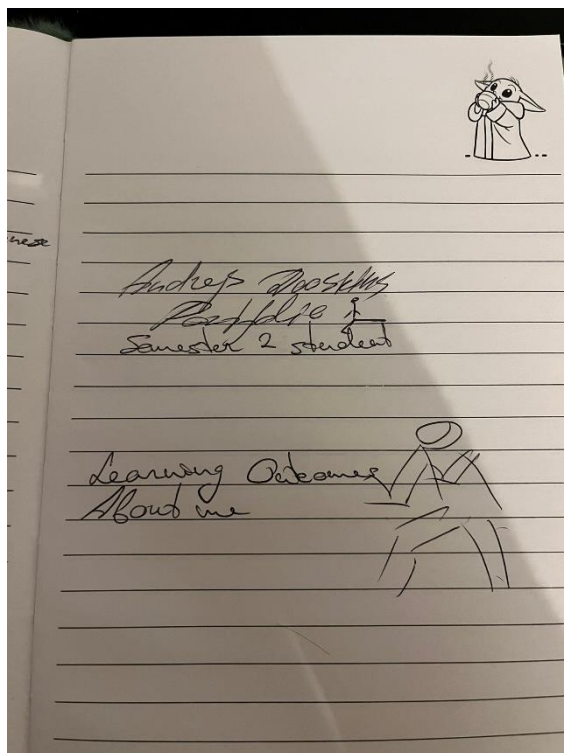 Andrejs
Portfolio
Semester 2 student
Learning Outcomes
About me